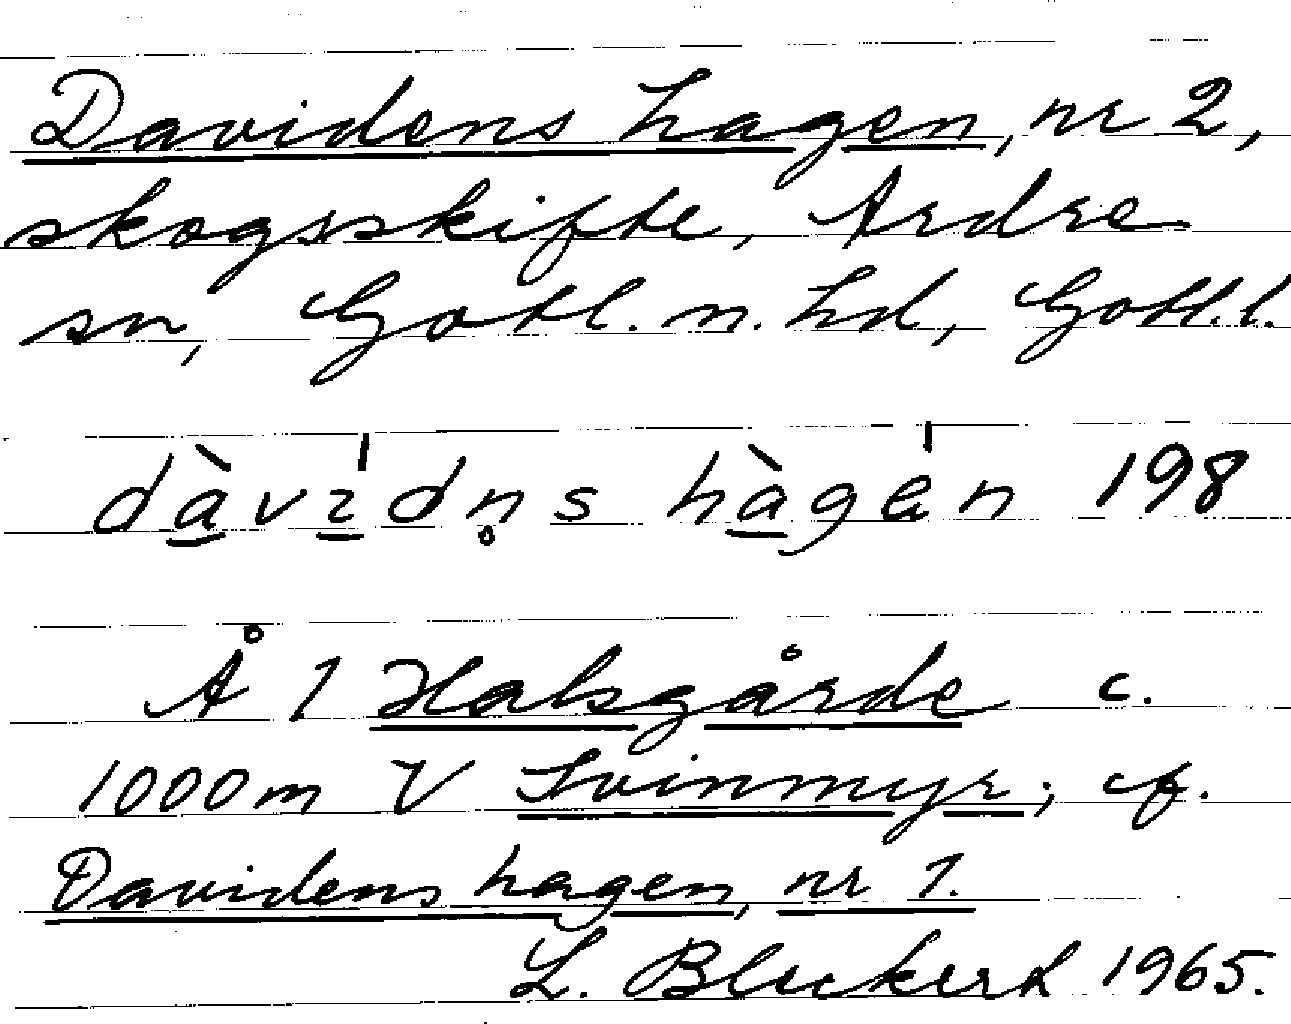 Davidens hagen, nr 2,
skogsskifte, Ardre
sn, Gotl. n. hd, Gotl.l.
dàvıdn̥s hàgen 198
Å 1 Halsgårde c.
1000 m V Svinmyr; cf.
Davidens hagen, nr 1.
L. Bluckert 1965.